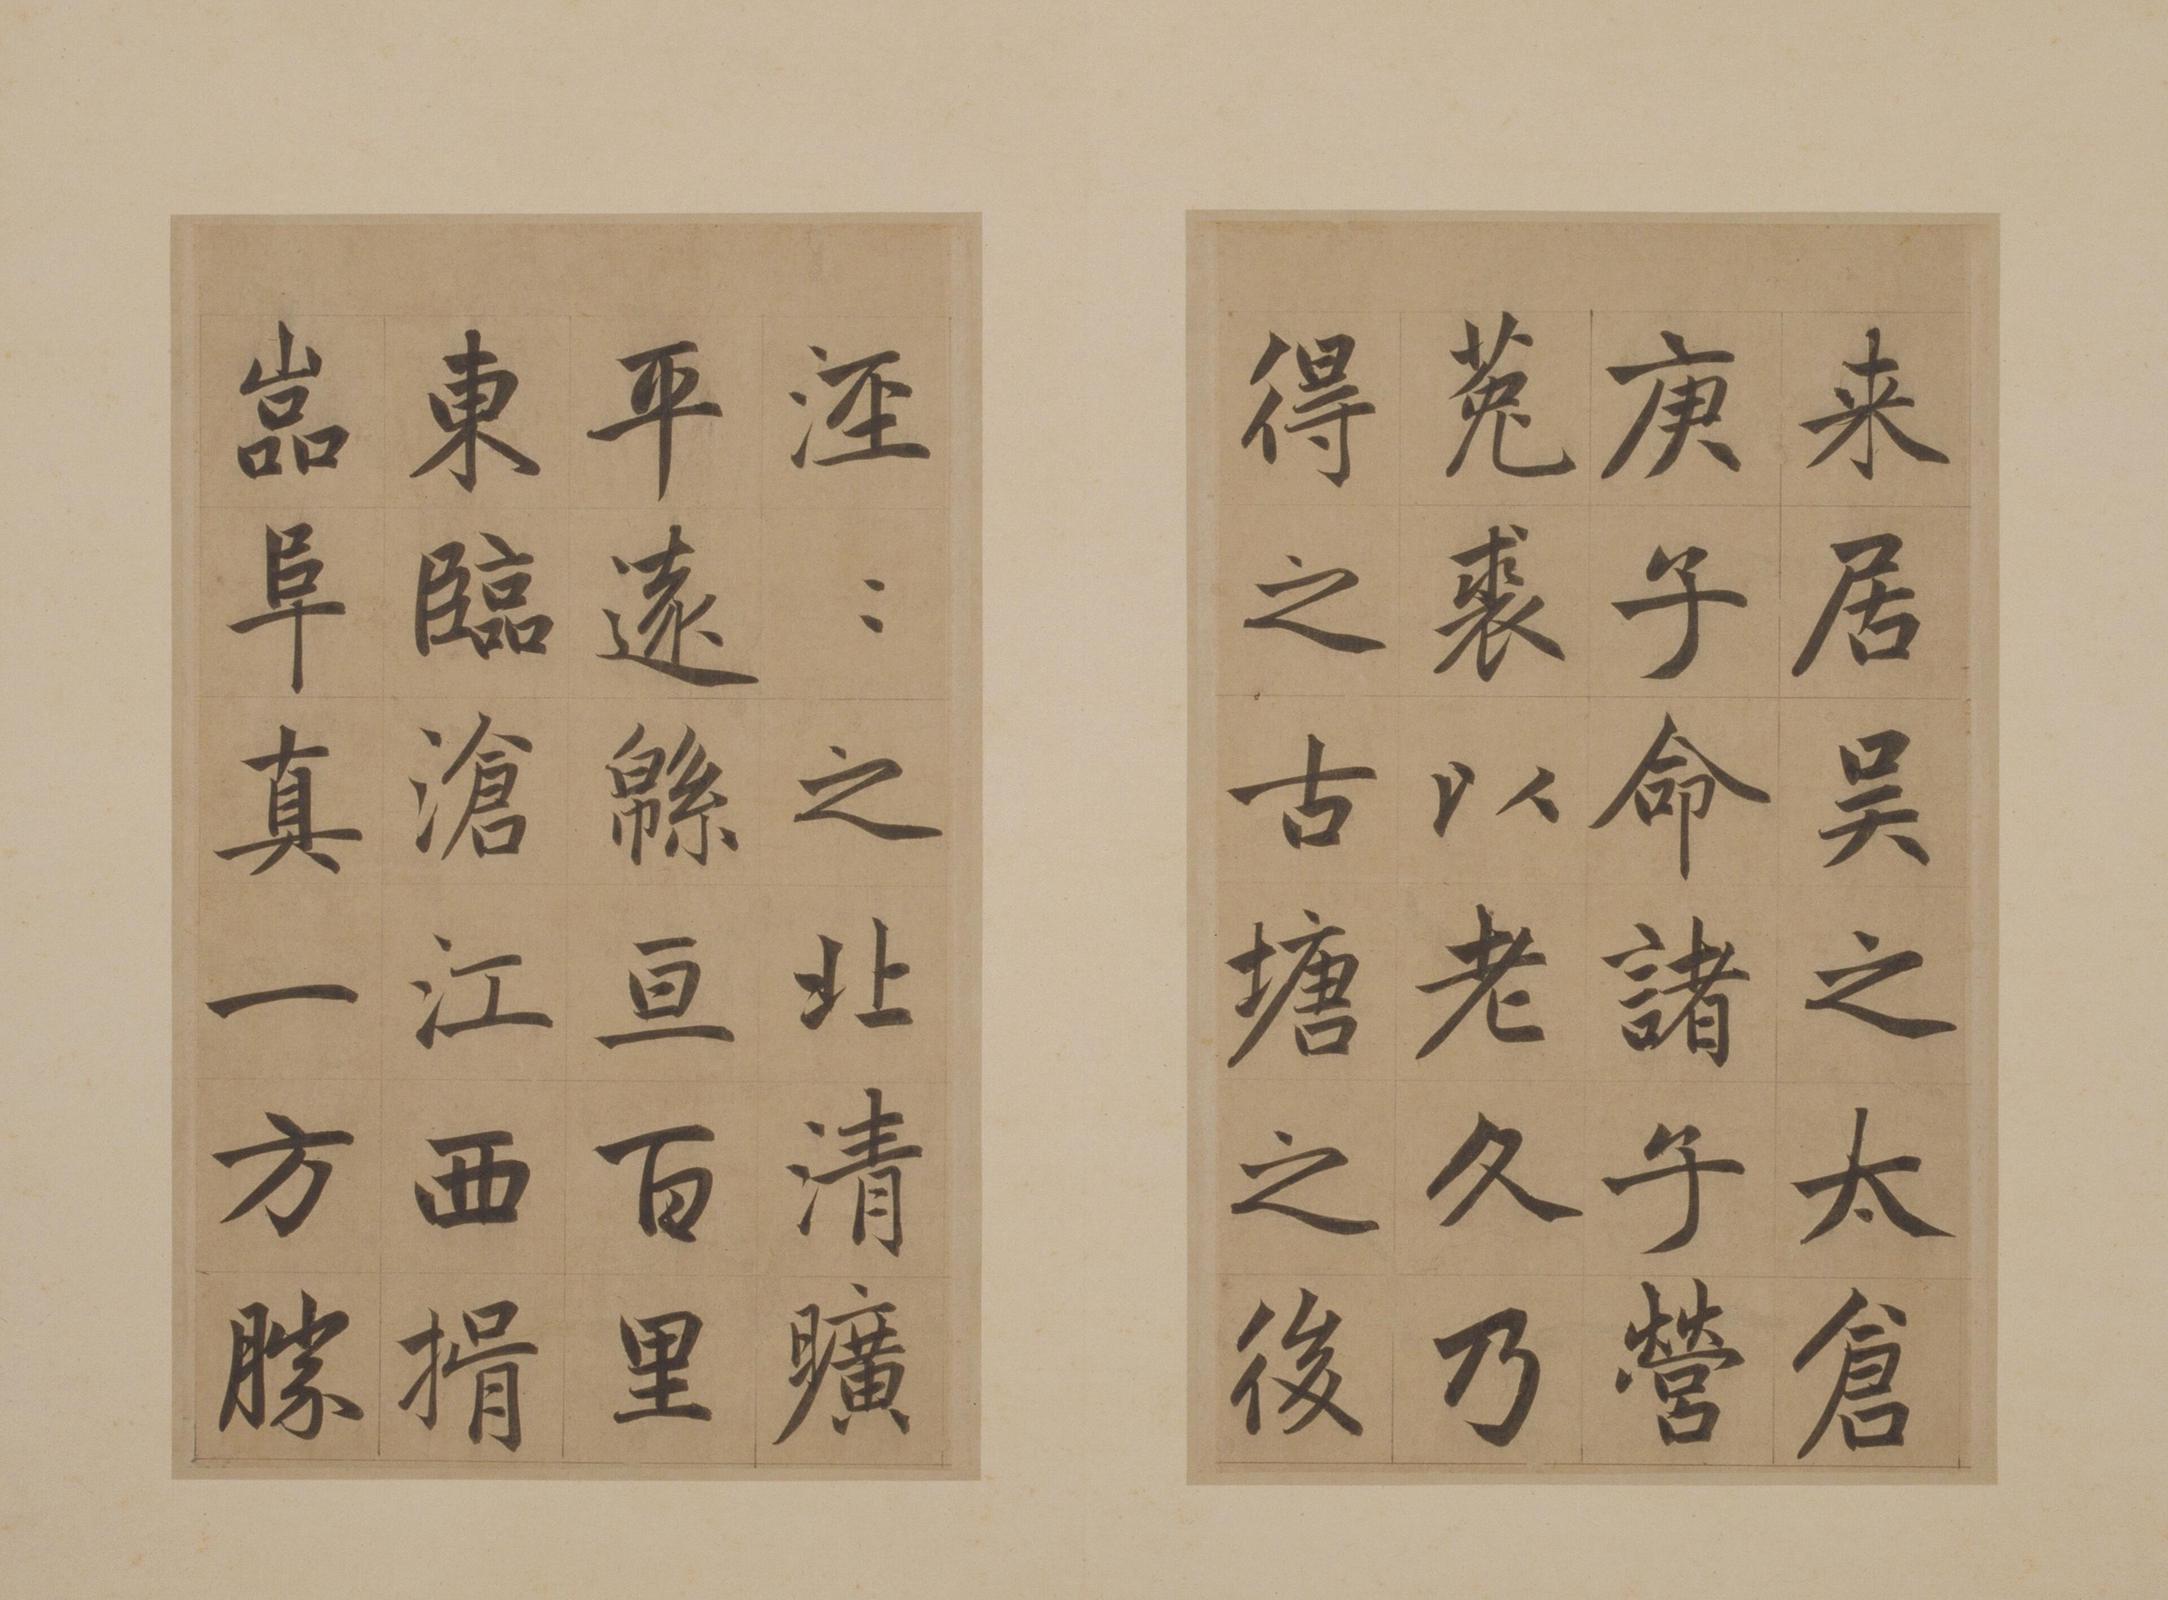 来居吴之太倉
庚子命諸子營
菟裘以老久乃
得之古塘之後
涇〻之北清曠
平遠緜亘百里
東臨滄江西揖
嵓阜真一方勝